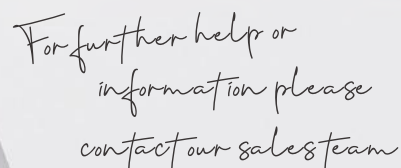 For further help or
information please
contact our sales team